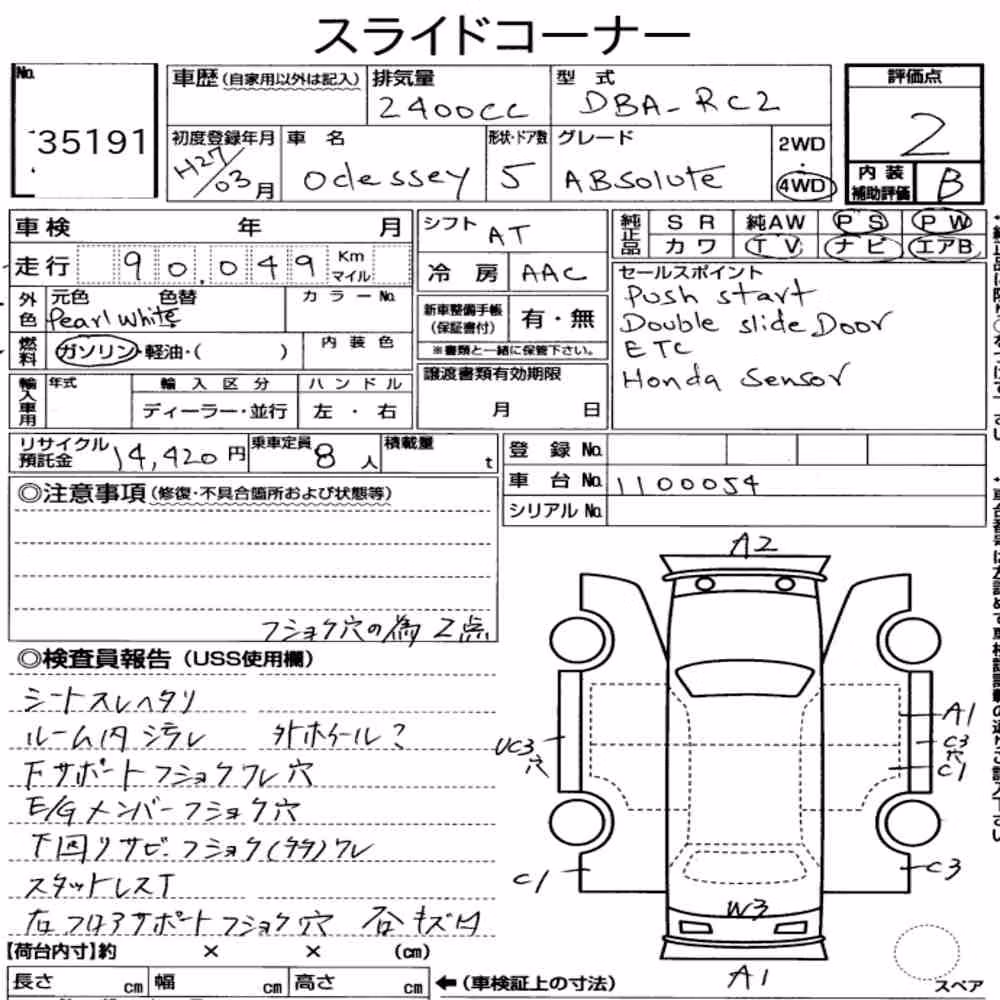 スライドコーナー
No. 35191
車歴 (自家用以外は記入)
排気量 2400cc
型式 DBA-RC2
評価点 2
初度登録年月 H27/03月
車名 Odessey
形状・ドア数 5
グレード ABsolute
2WD・4WD
内装補助評価 B
車検 年 月
シフト AT
純正品 SR 純AW PS PW
カワ TV ナビ エアB
走行 90,049 Km マイル
冷房 AAC
セールスポイント
Push start
Double slide Door
ETC
Honda Sensor
外色 元色 色替 カラーNo.
Pearl White
新車整備手帳(保証書付) 有・無
※書類と一緒に保管下さい。
燃料 ガソリン・軽油・( ) 内装色
輸入車用 年式 輸入区分 ハンドル
ディーラー・並行 左・右
譲渡書類有効期限
月 日
リサイクル預託金 14,420円
乗車定員 8人
積載量 t
登録No.
車台No. 1100054
シリアルNo.
◎注意事項 (修復・不具合箇所および状態等)
フショク穴の為 2点
◎検査員報告 (USS使用欄)
シートスレヘタリ
ルーム内 シラレ 外ホイール?
下サポートフショクワレ穴
E/Gメンバーフショク穴
下回りサビ フショク(タタ)ワレ
スタットレスT
右フロアサポートフショク穴 石キズ口
A2
A1
UC3 穴
C3 穴
C1
C1
C3
W3
A1
【荷台内寸】約 × × (cm)
長さ cm 幅 cm 高さ cm
←(車検証上の寸法)
スペア